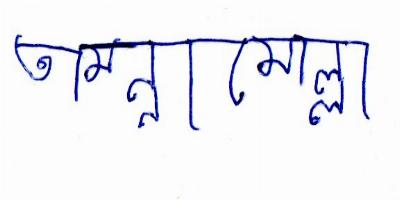 তামান্না মোল্লা